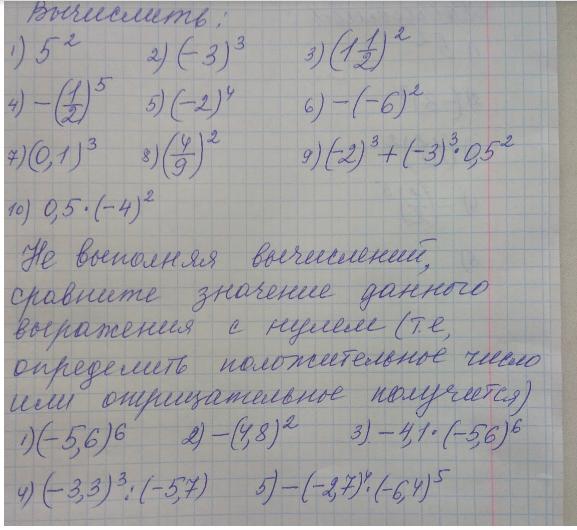 Вычислить:
1) 5² 2) (-3)³ 3) (1 1/2)²
4) -(1/2)⁵ 5) (-2)⁴ 6) -(-6)²
7) (0,1)³ 8) (4/9)² 9) (-2)³ + (-3)³ · 0,5²
10) 0,5 · (-4)²
Не выполняя вычислений,
сравните значение данного
выражения с нулем (т.е,
определить положительное число
или отрицательное получится)
1) (-5,6)⁶ 2) -(4,8)² 3) -4,1 · (-5,6)⁶
4) (-3,3)³ : (-5,7) 5) -(-2,7)⁴ · (-6,4)⁵